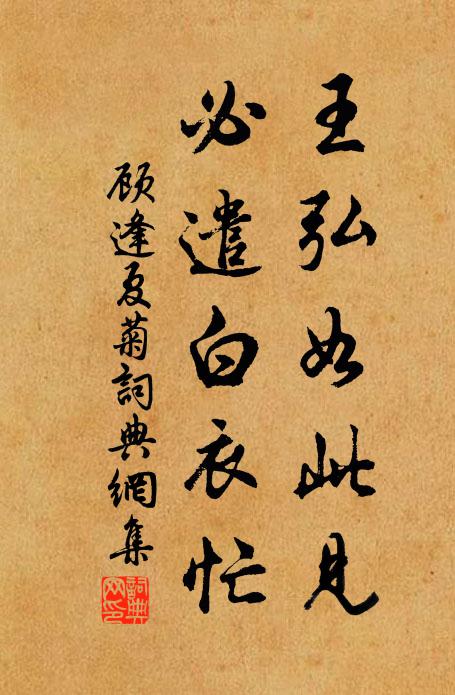 王弘如此見
必遣白衣忙
顾逢夏菊詞典網集
詞典网印